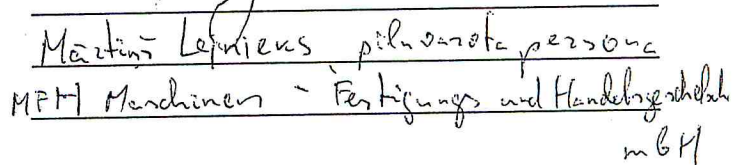 Mārtiņš Lejnieks pilnvarota persona
MFH Maschinen - Fertigungs und Handelsgeschelsch
mbH